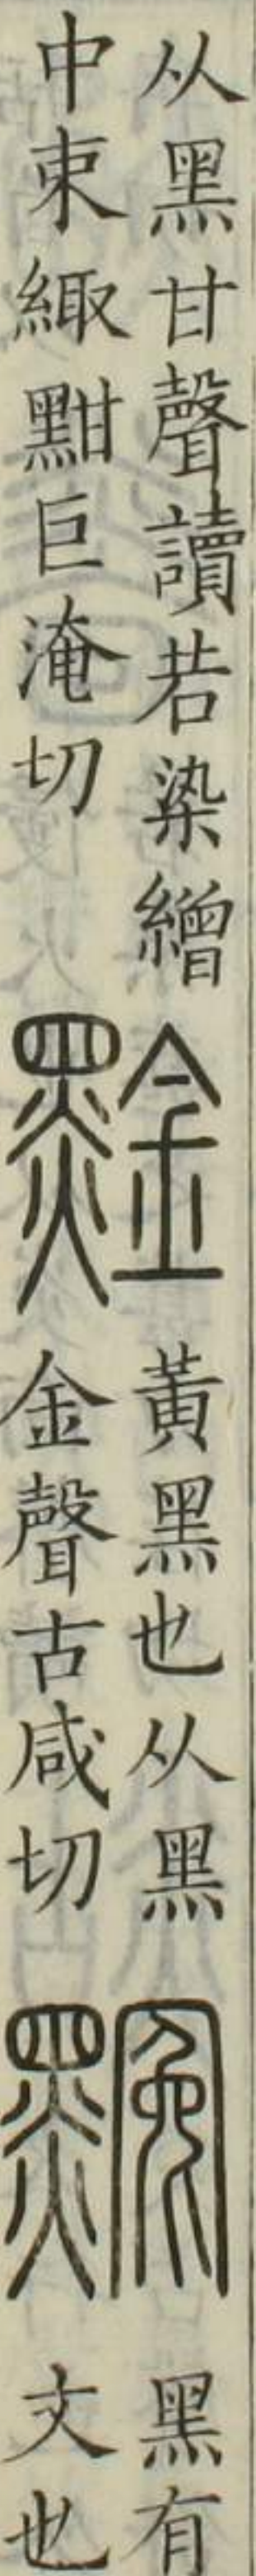 从黑甘聲讀若染繒
中束緅黚巨淹切
黅
黃黑也从黑
金聲古咸切
黑有
文也